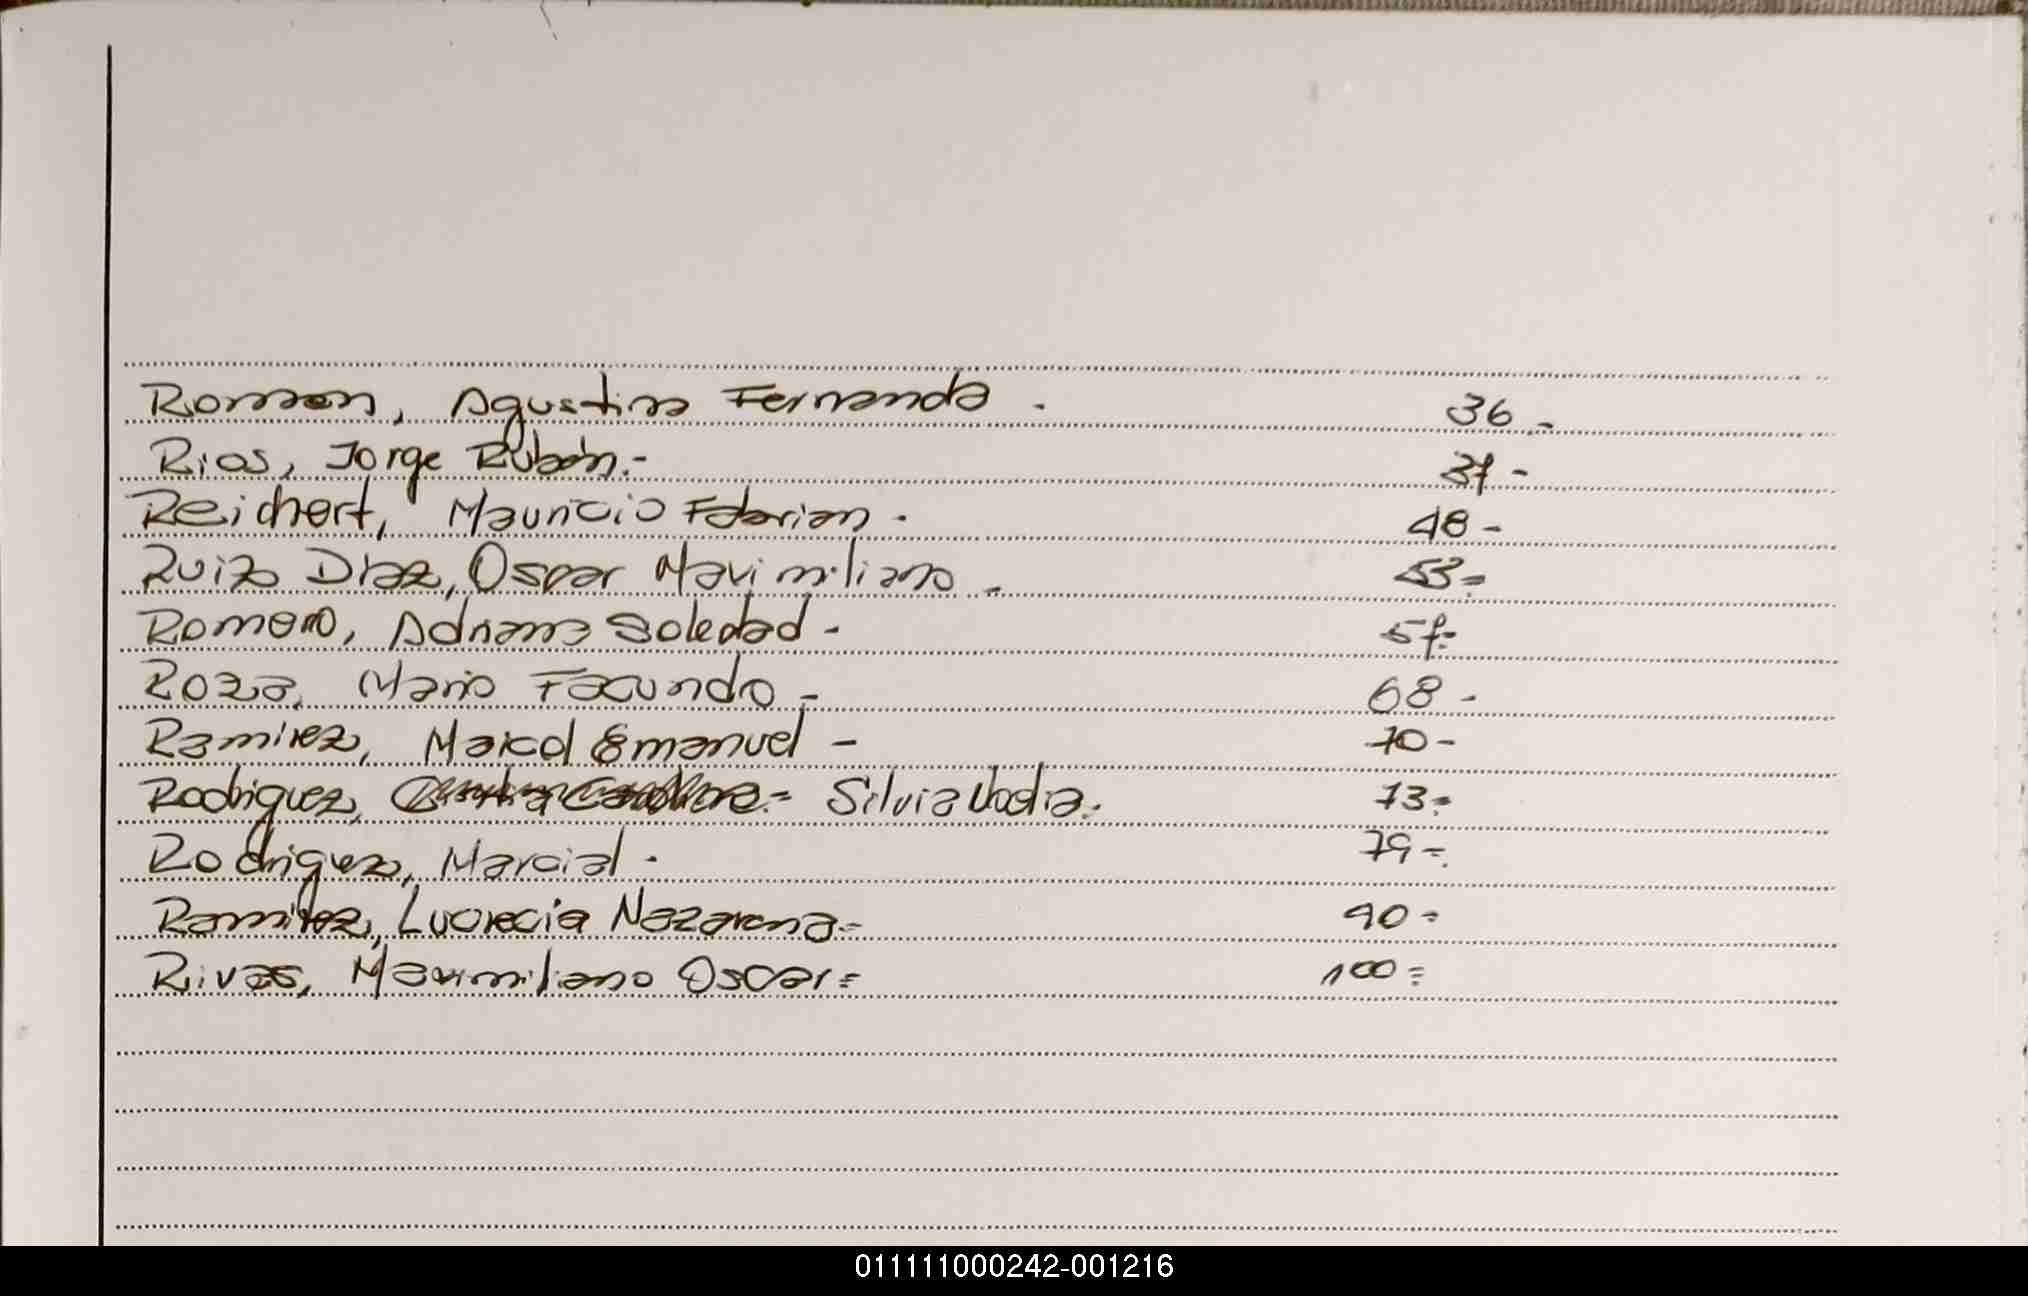 Roman, Agustina Fernanda . 36 -
Rios, Jorge Rubén.- 37 -
Reichert, Mauricio Fabian . 48 -
Ruiz Diaz, Oscar Maximiliano - 53 =
Romero, Adriana Soledad - 57=
Roza, Mario Facundo - 68 -
Ramirez, Maicol Emanuel - 70 -
Rodriguez, Silvia Nadia. 73 =
Rodriguez, Marcial . 79 =
Ramirez, Lucrecia Nazarena = 90 =
Rivas, Maximiliano Oscar = 100 =
011111000242-001216